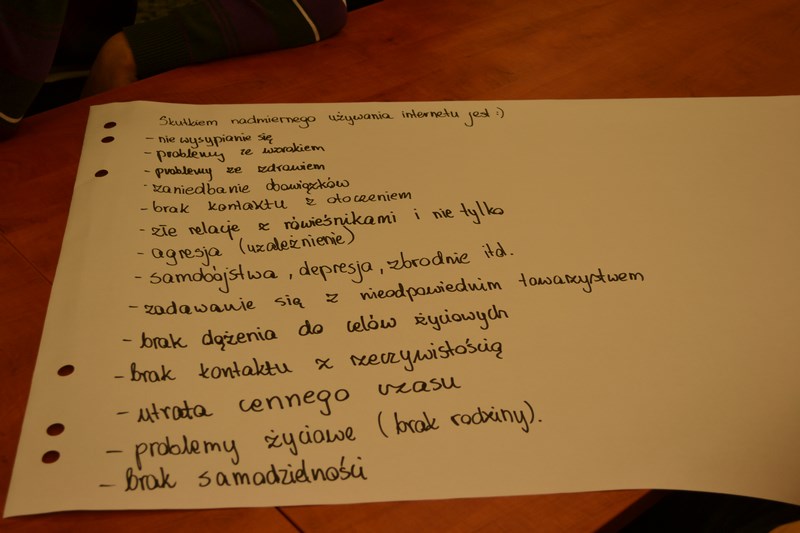 Skutkiem nadmiernego używania internetu jest :)
- nie wysypianie się
- problemy ze wzrokiem
- problemy ze zdrowiem
- zaniedbanie obowiązków
- brak kontaktu z otoczeniem
- złe relacje z rówieśnikami i nie tylko
- agresja (uzależnienie)
- samobójstwa, depresja, zbrodnie itd.
- zadawanie się z nieodpowiednim towarzystwem
- brak dążenia do celów życiowych
- Brak kontaktu z rzeczywistością
- utrata cennego czasu
- problemy życiowe (brak rodziny).
- Brak samodzielności